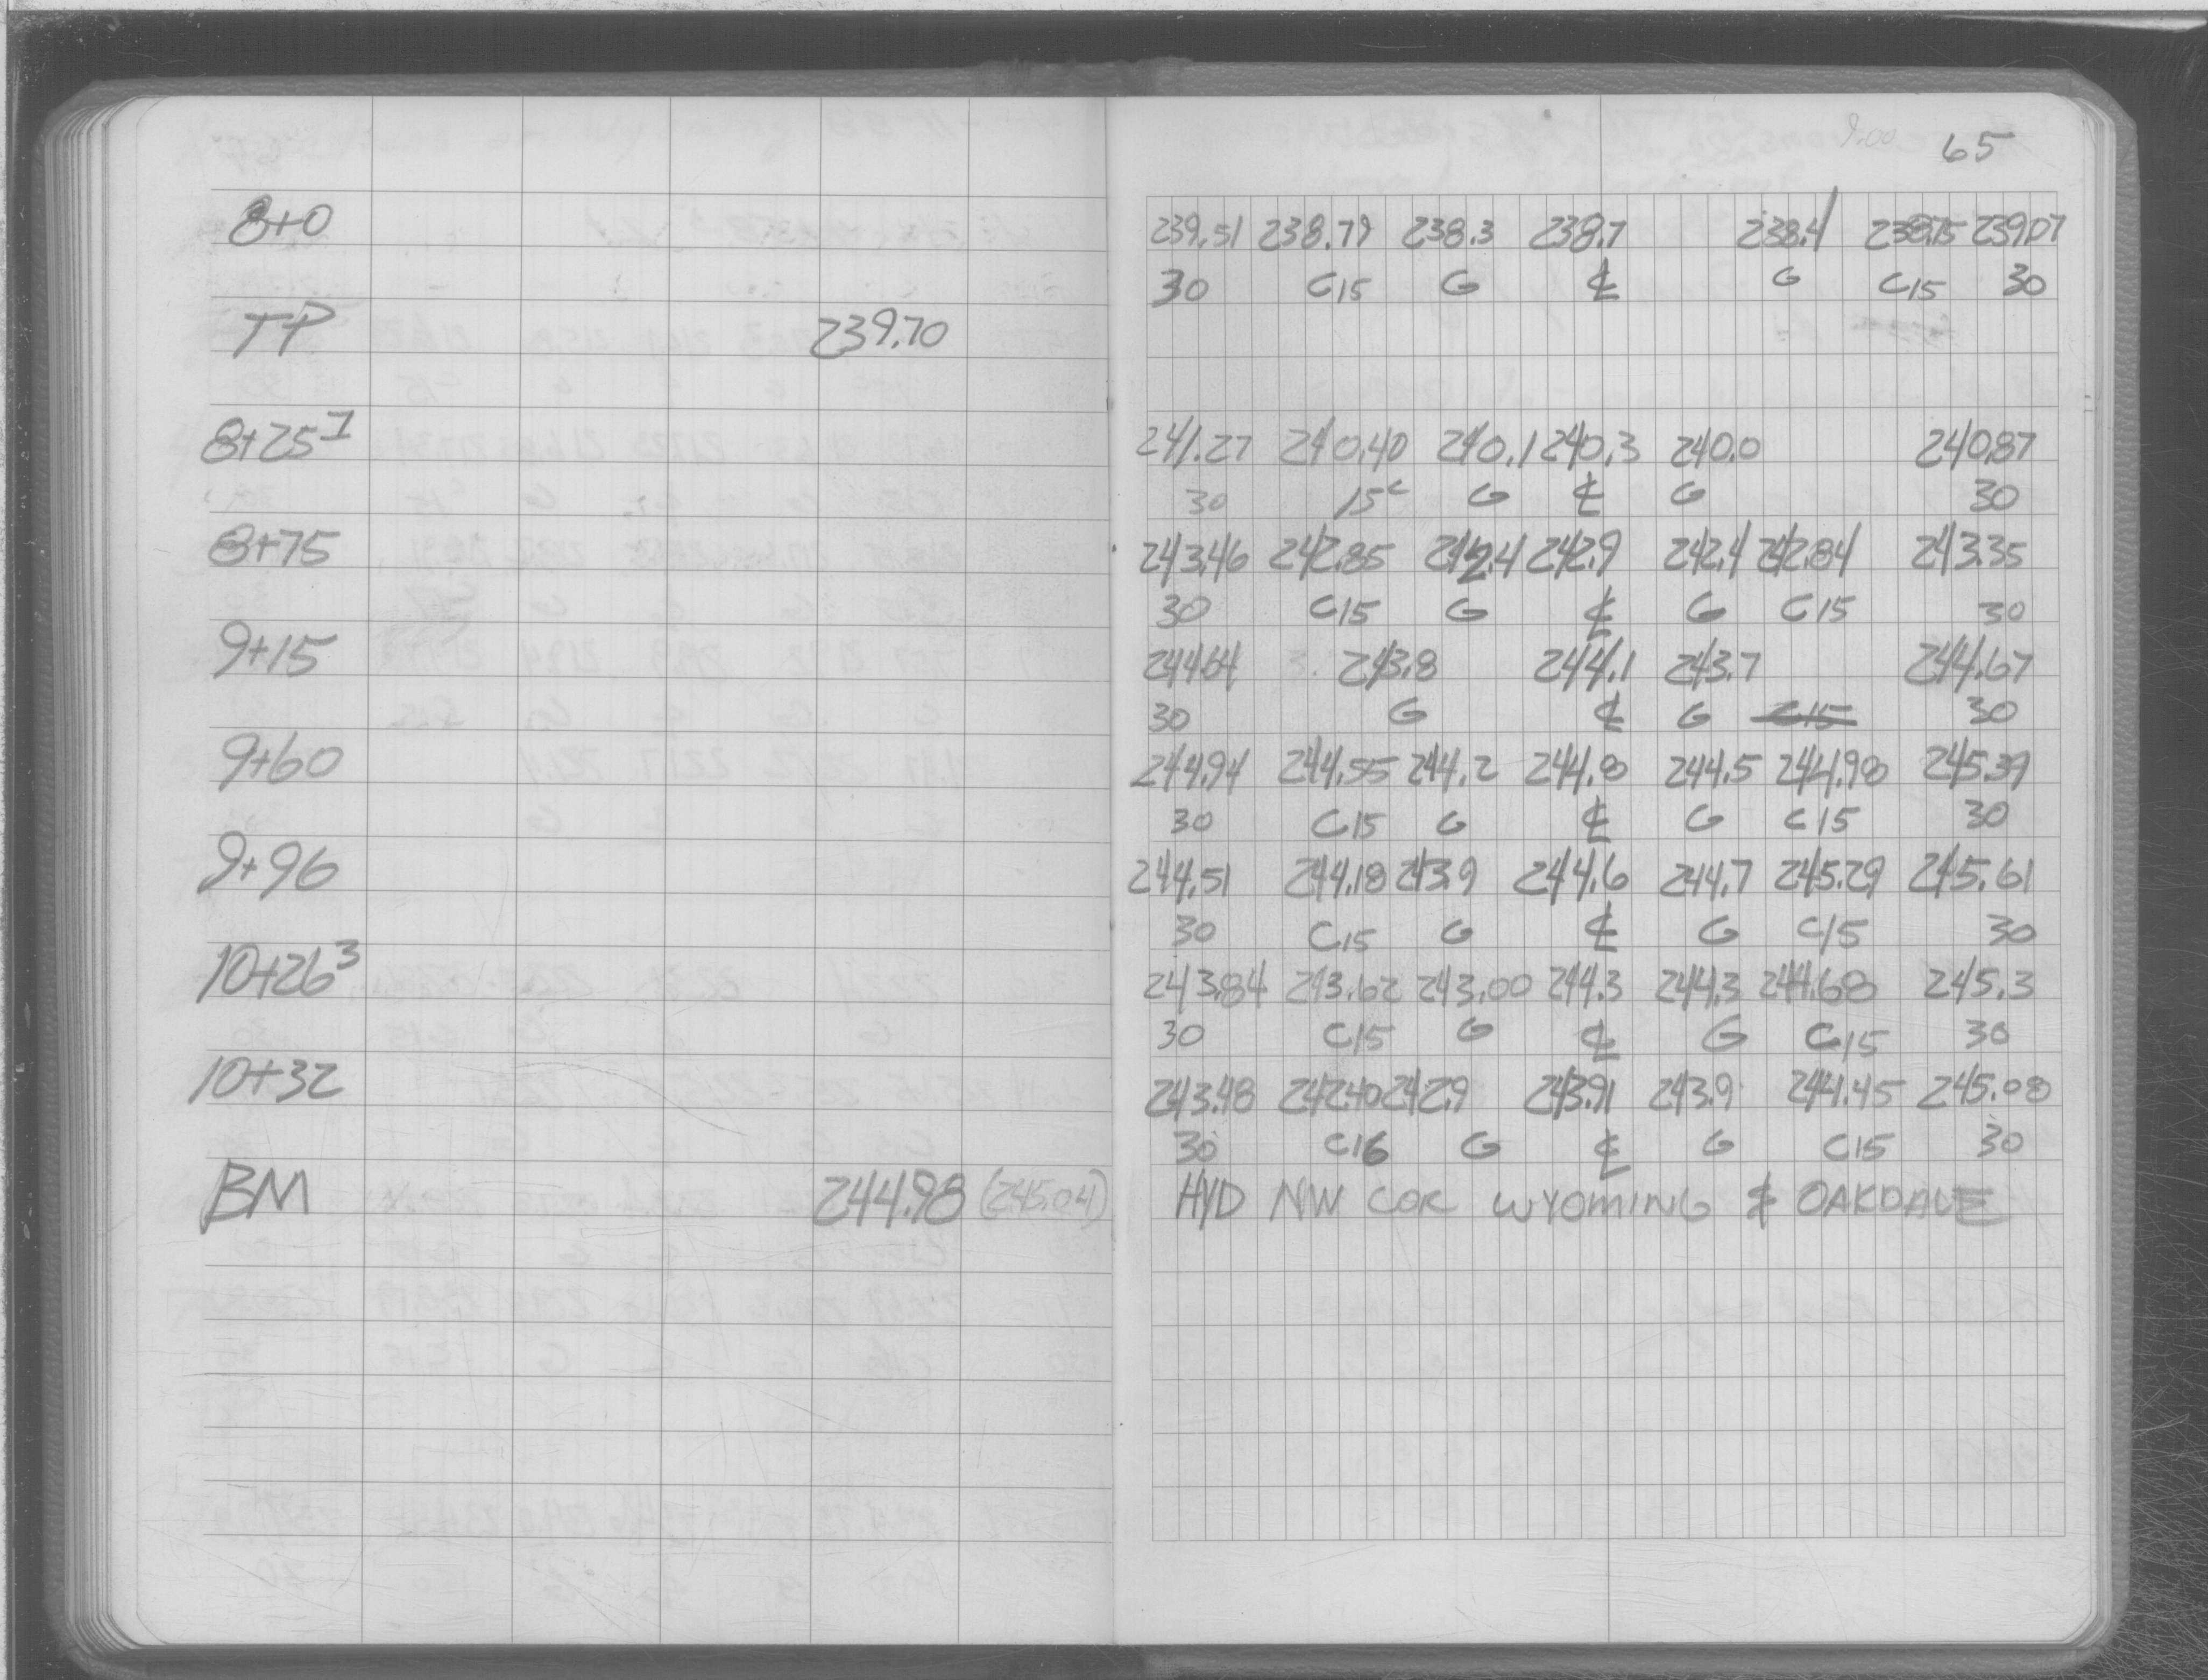 65
8+0 239.51 238.79 238.3 238.7 238.4 238.75 239.07
30 C15 G ℄ G C15 30
TP 239.70
8+25¹ 241.27 240.40 240.1 240.3 240.0 240.87
30 15ᶜ G ℄ G 30
8+75 243.46 242.85 242.4 242.9 242.4 242.84 243.35
30 C15 G ℄ G C15 30
9+15 244.64 243.8 244.1 243.7 244.67
30 G ℄ G C15 30
9+60 244.94 244.55 244.2 244.8 244.5 244.98 245.39
30 C15 G ℄ G C15 30
9+96 244.51 244.18 243.9 244.6 244.7 245.29 245.61
30 C15 G ℄ G C15 30
10+26³ 243.84 243.62 243.00 244.3 244.3 244.68 245.3
30 C15 G ℄ G C15 30
10+32 243.48 242.40 242.9 243.91 243.9 244.45 245.08
30 C16 G ℄ G C15 30
BM 244.98 (245.04) HYD NW COR WYOMING & OAKDALE